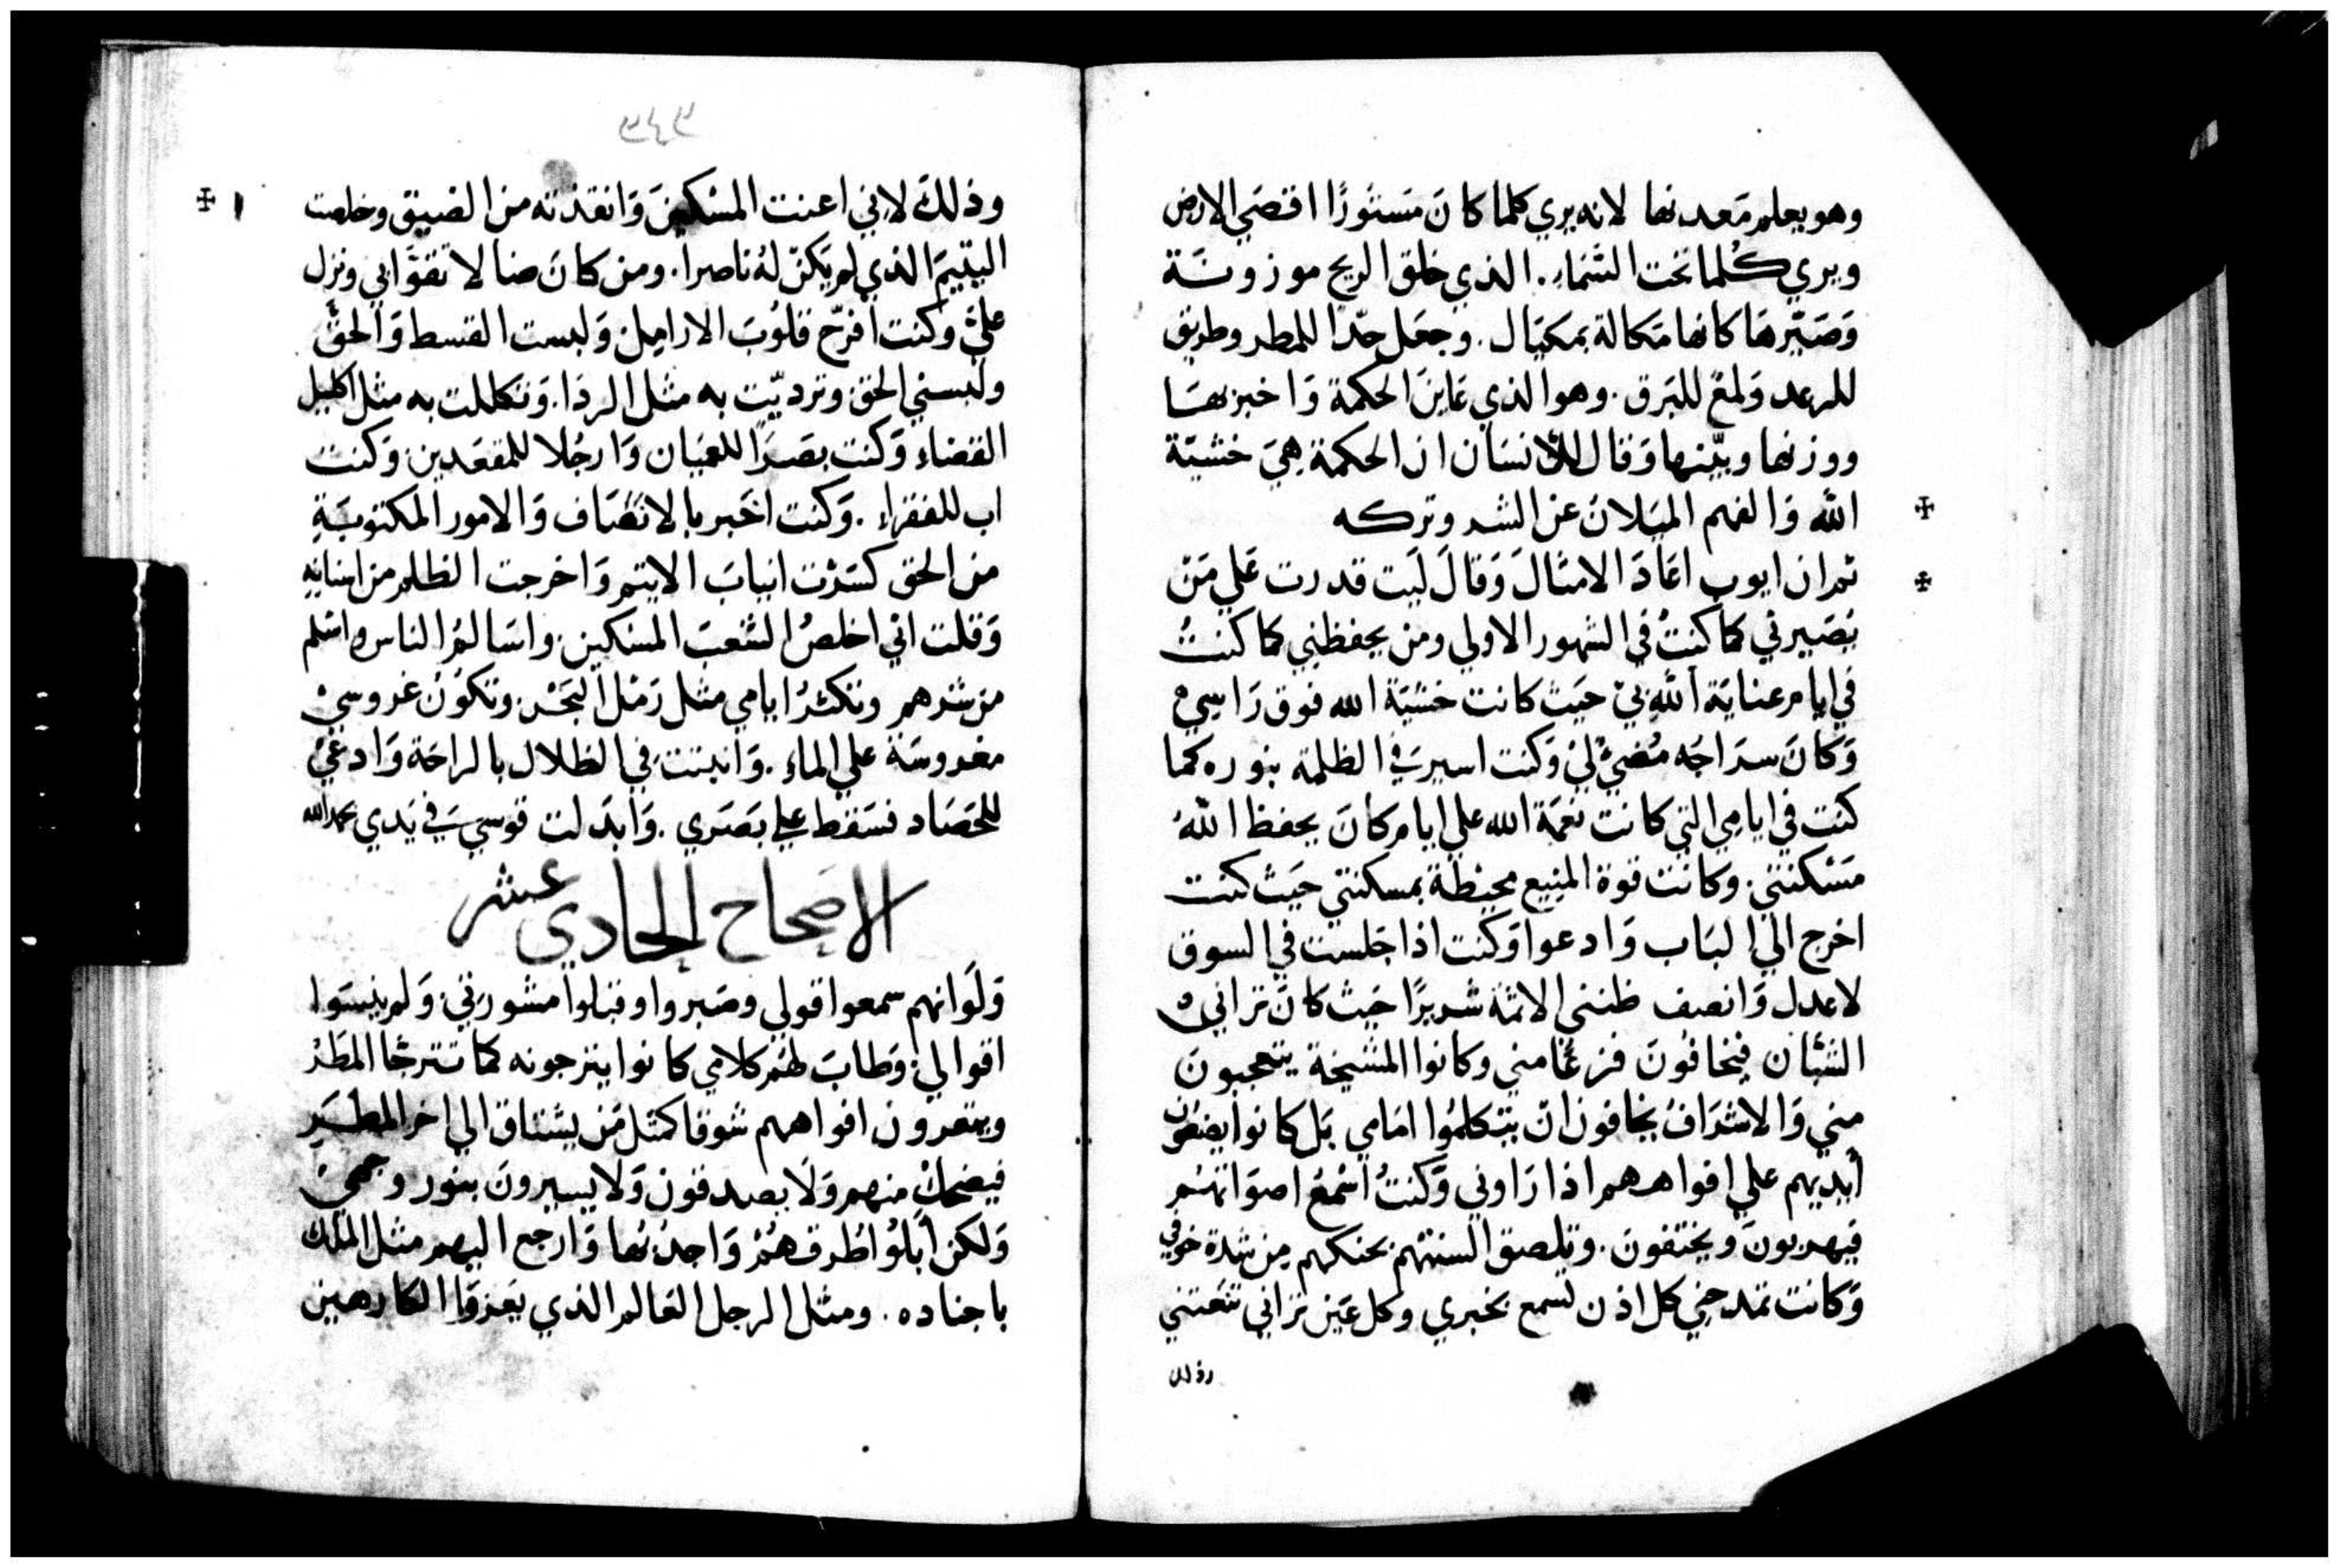 وهو يعلم مَعدنها لانه يري كلما كانَ مَستورًا اقصَي الارض
ويري كُلما تحت السَّماءِ. الذي خلق الريح موزونَة
وَصَيَّرهَا كانها مَكالة بمكيَال. وجعَل حَدّا للمطر وطريق
للرعد وَلمعً للبَرق. وهو الذي عَاينَ الحكمة وَاخبر بهَا
ووزنها وبيّنها وَقال للأنسَان ان الحكمة هِيَ خشيَة
الله وَالفهم الميَلان عن الشر وتركه
ثم ان ايوب اعَادَ الامثالَ وَقالَ لَيت قدرت عَلي مَن
يصَيرني كما كنتُ في الشهور الاولي ومن يحفظني كما كنتُ
في ايام عنايَة اللهِ بيْ حَيث كانت خشيَة الله فوق رَاسيْ
وَكانَ سرَاجَه مُضيءٌ ليْ وَكنت اسيرَ في الظلمة بنوره كما
كنت في ايامي التي كانت نعمَة الله علي ايام كانَ يحفظ اللهُ
مَسْكنتي. وكانت قوة المنيع محيطة بمسكنتي حيَث كنت
اخرج الي البَاب وَادعوا وَكنت اذا جَلست في السوق
لاعدل وَانصف ظنني الاثمة شريرًا حَيث كانَ تراني
الشبَّان فيخافونَ فزعًا مني وكانوا المشيخة يتعجبونَ
مني وَالاشرَافُ يخافون ان يتكلمُوا امَامي بَل كانوا يضعُون
أيديهم علي افواههم اذا رَاوني وَكنتُ اسْمعُ اصوَاتهُم
فيهربونَ ويختفونَ. وتلصق السنتهم بحنكهم من شدة خوفي
وَكانت تمدحني كل اذن تسمع بخبري وكل عَين تراني تنعتني
وذلك
وذلكَ لاني اعنت المسْكينَ وَانقذته من الضيق وخلصت
اليتيمَ الذي لم يَكنْ لهُ ناصرا. ومن كانَ ضالا تقوَّا بي ونزل
عليَّ وكنت افرّح قلوُبَ الاراميل وَلبست القسط وَالحقَّ
ولبسني الحق وتردّيت به مثل الردَا. وَتكللت به مثل اكليل
القضاءِ وَكنت بصَرًا للعميَان وَارجُلا للمقعَدين وَكنت
اب للفقراءِ. وَكنت اخَبر بالانصَاف وَالامور المكتوبَةِ
من الحق كسَرْت انيابَ الايتم وَاخرجت الظلم من اسنانِهِ
وَقلت اني اخلصُ الشعبَ المسكين واسَالمُ الناس واسْلم
من شرهم وتكثرُ ايامي مثل رَمْل البَحْر وتكوُن غروسيْ
مغروسَة علي الماءِ. وَانبتت في الظلال بالراحَة وَادعيْ
للحَصَاد فسَقط علي بصَري. وَابدَلت قوسيَ في يَدي بحمد الله
الاصَحاح الحادي عشر
وَلَو انهم سمعوا قولي وصَبروا وقبلوا مشورَتي وَلم ينسَوا
اقوالي وَطابَ لهُم كلامي كانوا يترجونه كما تترجَّا المطَرْ
ويفغرون افواههم شوقا كمثل مَن يشتاق الي اخر المطَرِ
فيضحك منهم وَلَا يصدقون وَلا يسيرونَ بنور وجهيْ
وَلكن أبلوُا طُرقهُمْ وَاجدُنُها وَارجع اليهم مثل الملك
باجناده. ومثل الرجل العَالم الذي يَعزوَا الكارهين